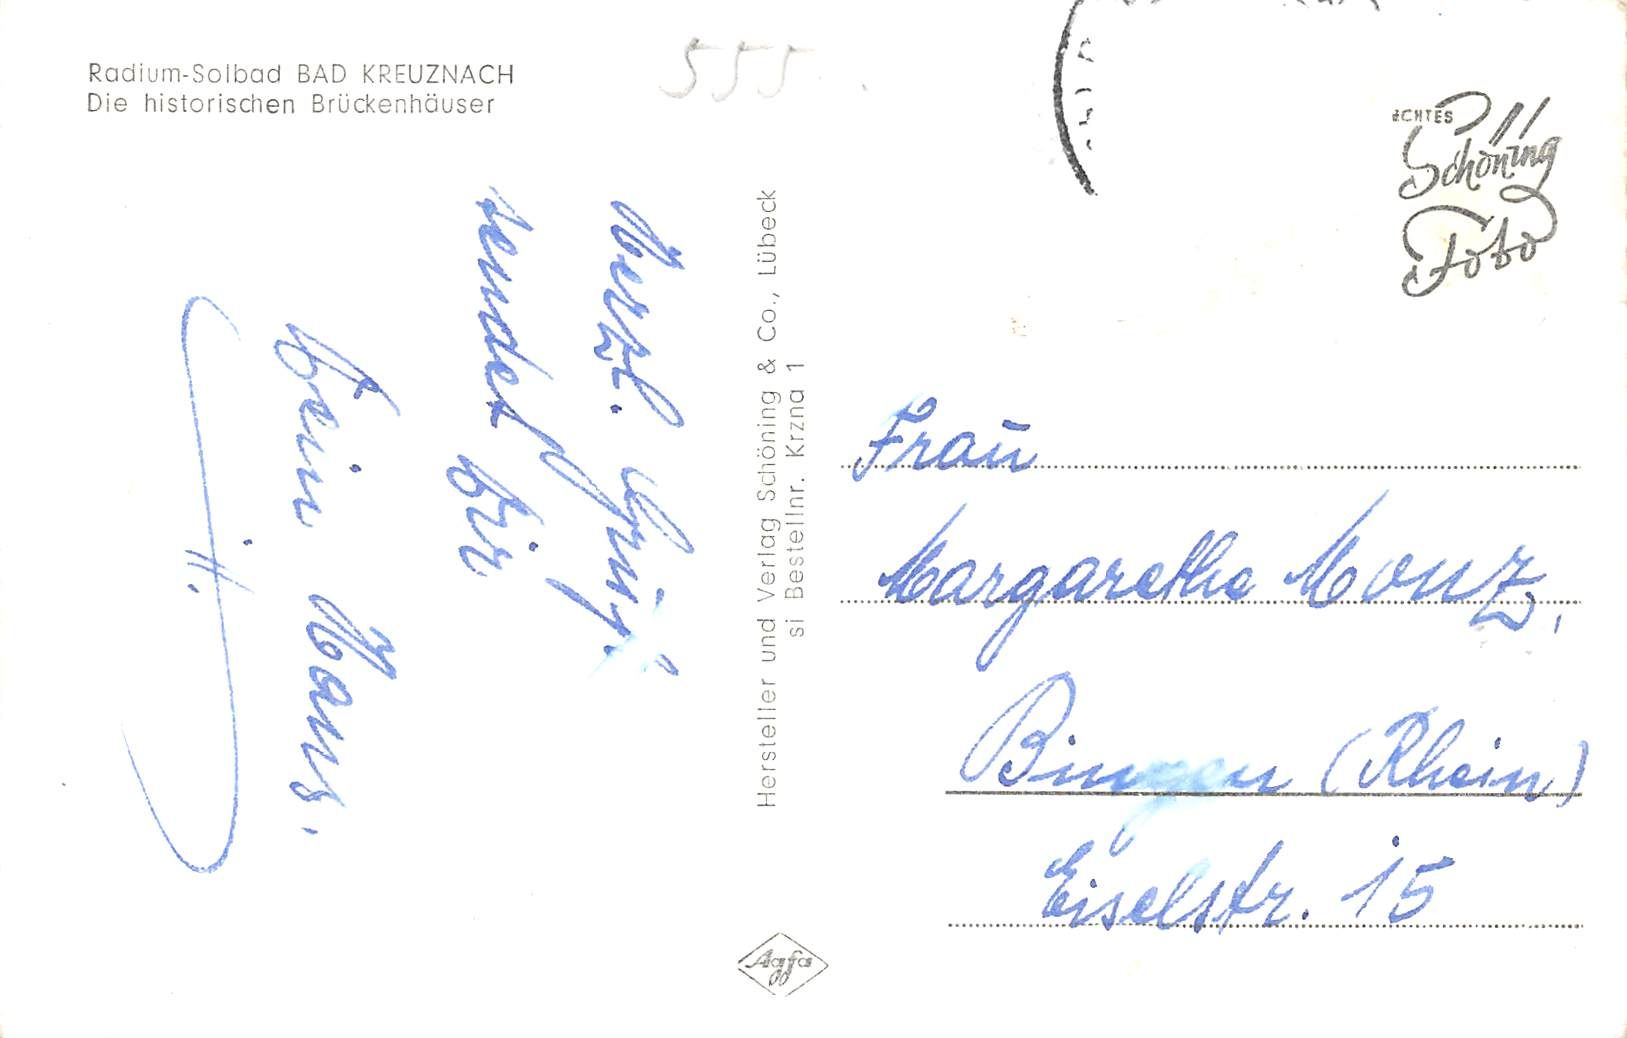 Radium-Solbad BAD KREUZNACH
Die historischen Brückenhäuser
555
ECHTES
Schöning
Foto
Herzl. Grüße
sendet Dir
Dein Hans.
H.
Hersteller und Verlag Schöning & Co., Lübeck
si Bestellnr. Krzna 1
Frau
Margarethe Monz,
Bingen (Rhein)
Eiselstr. 15
Agfa